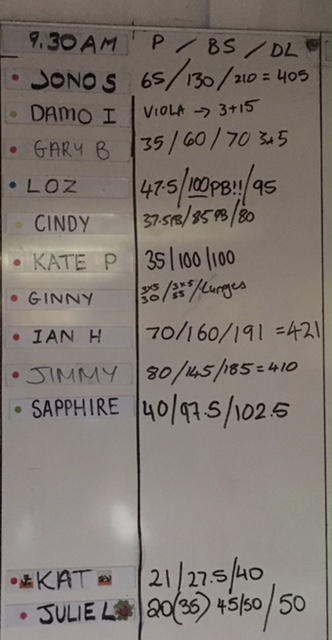 9.30AM P / BS / DL
JONO S 65/130/210 = 405
DAMO I VIOLA → 3+15
GARY B 35/60/70 3x5
LOZ 47.5/100PB!!/95
CINDY 37.5PB/85PB/80
KATE P 35/100/100
GINNY 3x5 30 / 3x5 55 / Lunges
IAN H 70/160/191 = 421
JIMMY 80/145/185 = 410
SAPPHIRE 40/97.5/102.5
KAT 21/27.5/40
JULIE L 20(35) 45/50/50